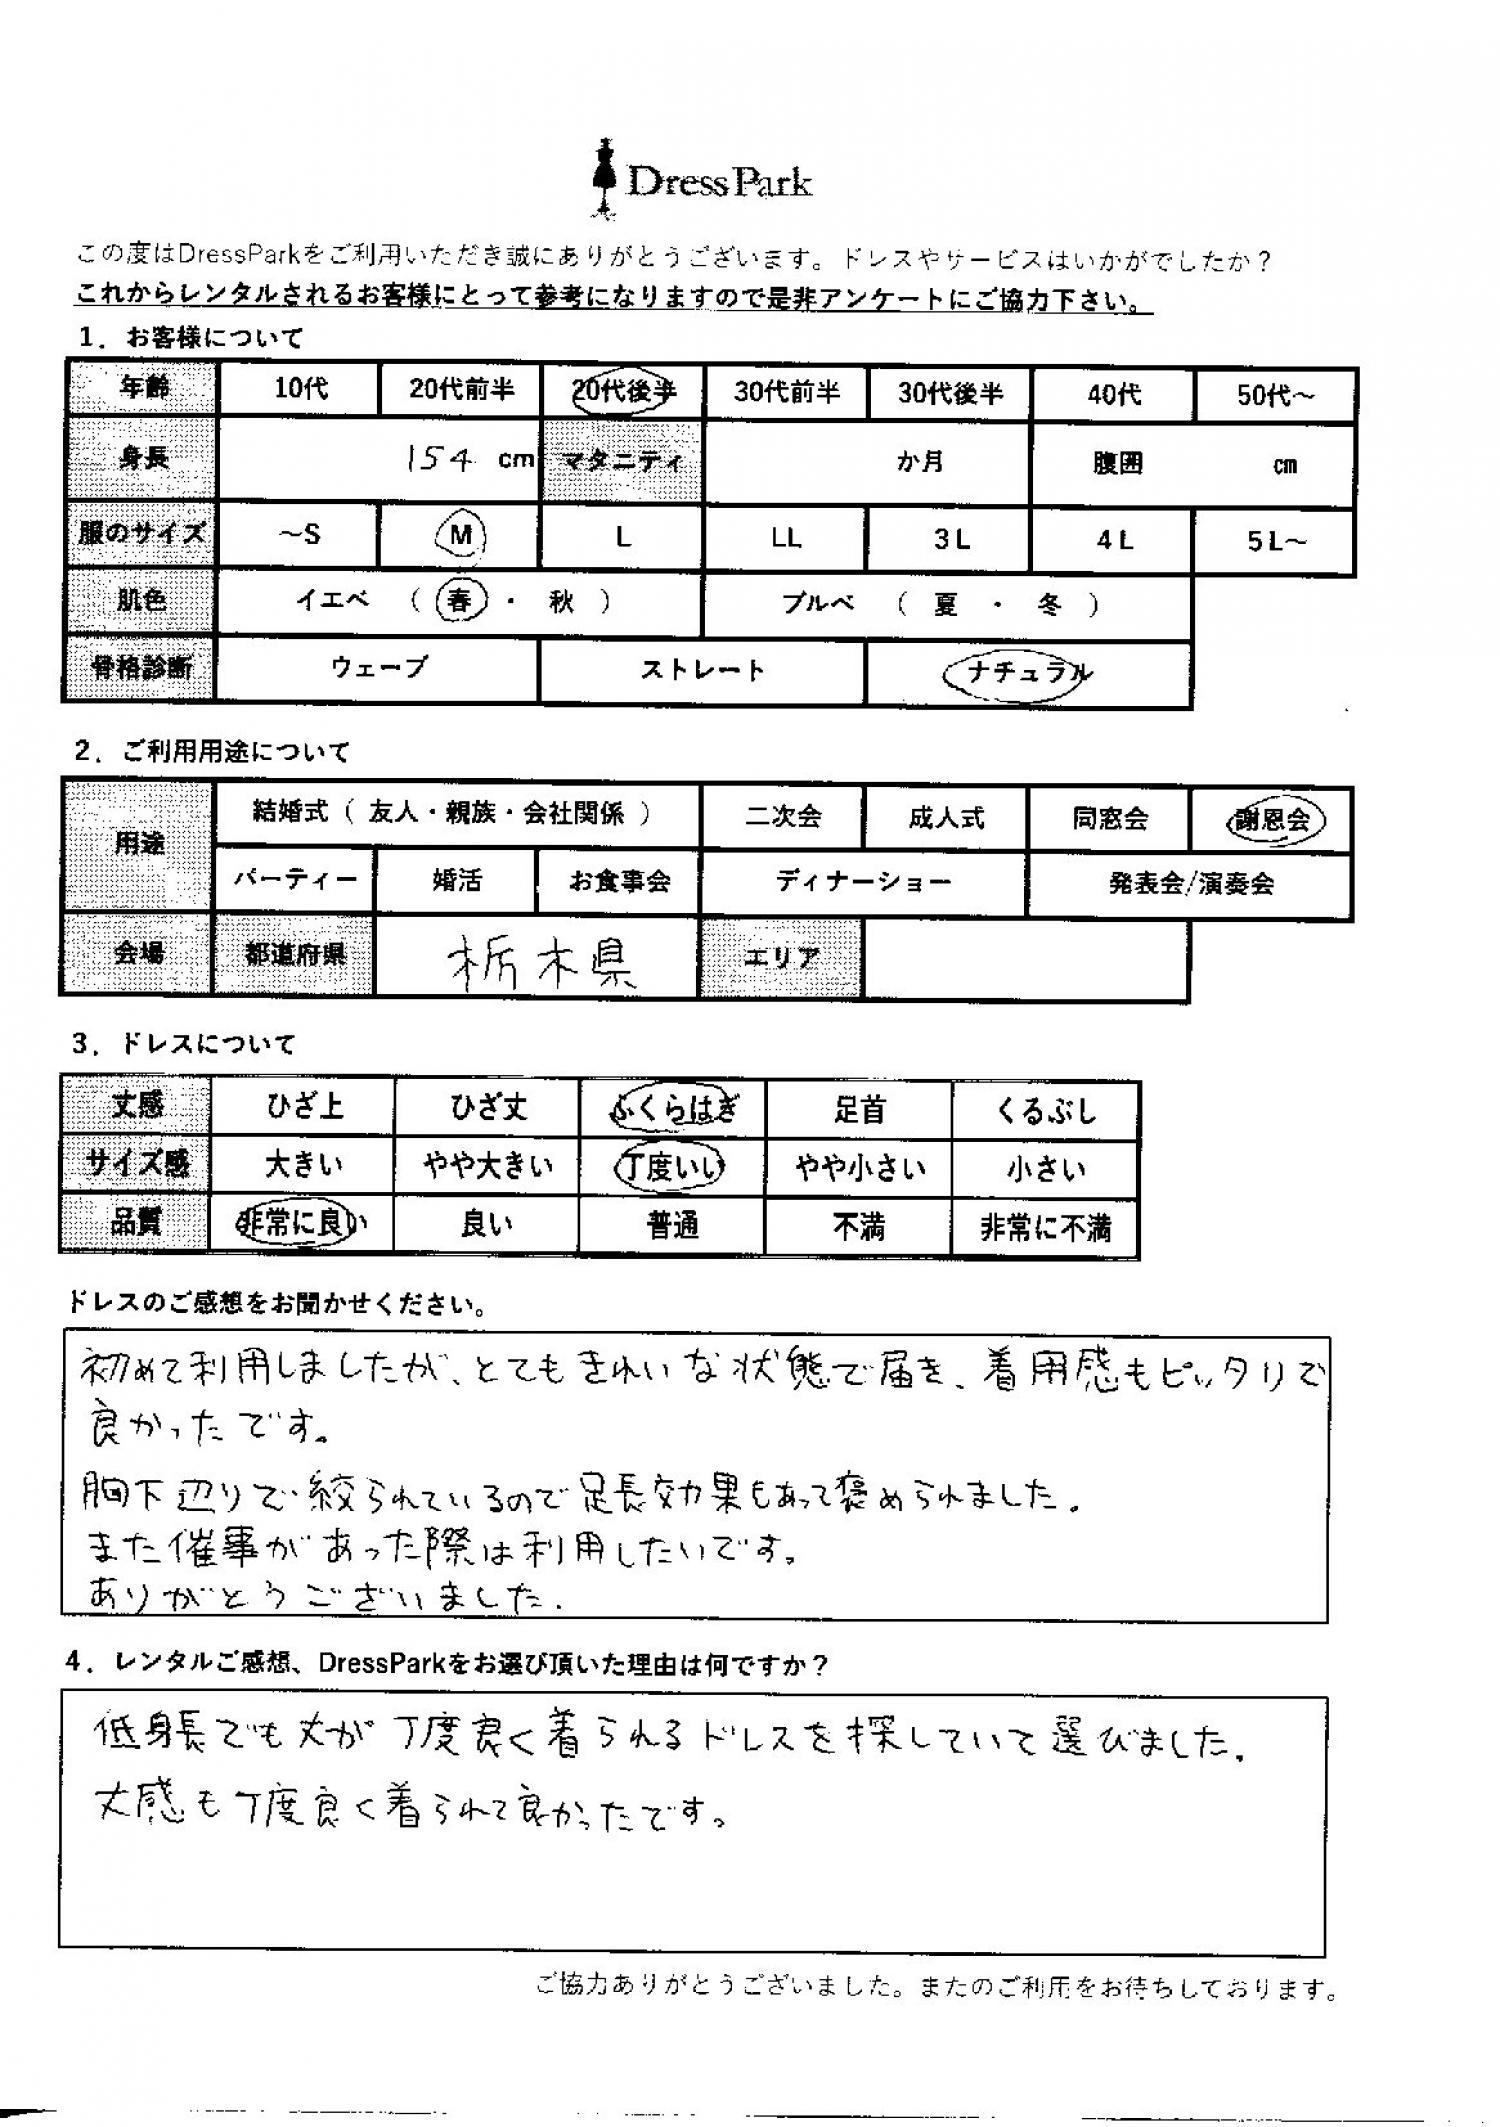 DressPark
この度はDressParkをご利用いただき誠にありがとうございます。ドレスやサービスはいかがでしたか？
これからレンタルされるお客様にとって参考になりますので是非アンケートにご協力下さい。
1．お客様について
年齢 10代 20代前半 20代後半 30代前半 30代後半 40代 50代～
身長 154 cm マタニティ か月 腹囲 cm
服のサイズ ～S M L LL 3L 4L 5L～
肌色 イエベ （ 春 ・ 秋 ） ブルベ （ 夏 ・ 冬 ）
骨格診断 ウェーブ ストレート ナチュラル
2．ご利用用途について
用途 結婚式（ 友人・親族・会社関係 ） 二次会 成人式 同窓会 謝恩会
パーティー 婚活 お食事会 ディナーショー 発表会/演奏会
会場 都道府県 栃木県 エリア
3．ドレスについて
丈感 ひざ上 ひざ丈 ふくらはぎ 足首 くるぶし
サイズ感 大きい やや大きい 丁度いい やや小さい 小さい
品質 非常に良い 良い 普通 不満 非常に不満
ドレスのご感想をお聞かせください。
初めて利用しましたが、とてもきれいな状態で届き、着用感もピッタリで
良かったです。
胸下辺りで絞られているので足長効果もあって褒められました.
また催事があった際は利用したいです。
ありがとうございました.
4．レンタルご感想、DressParkをお選び頂いた理由は何ですか？
低身長でも丈が丁度良く着られるドレスを探していて選びました.
丈感も丁度良く着られて良かったです。
ご協力ありがとうございました。またのご利用をお待ちしております。